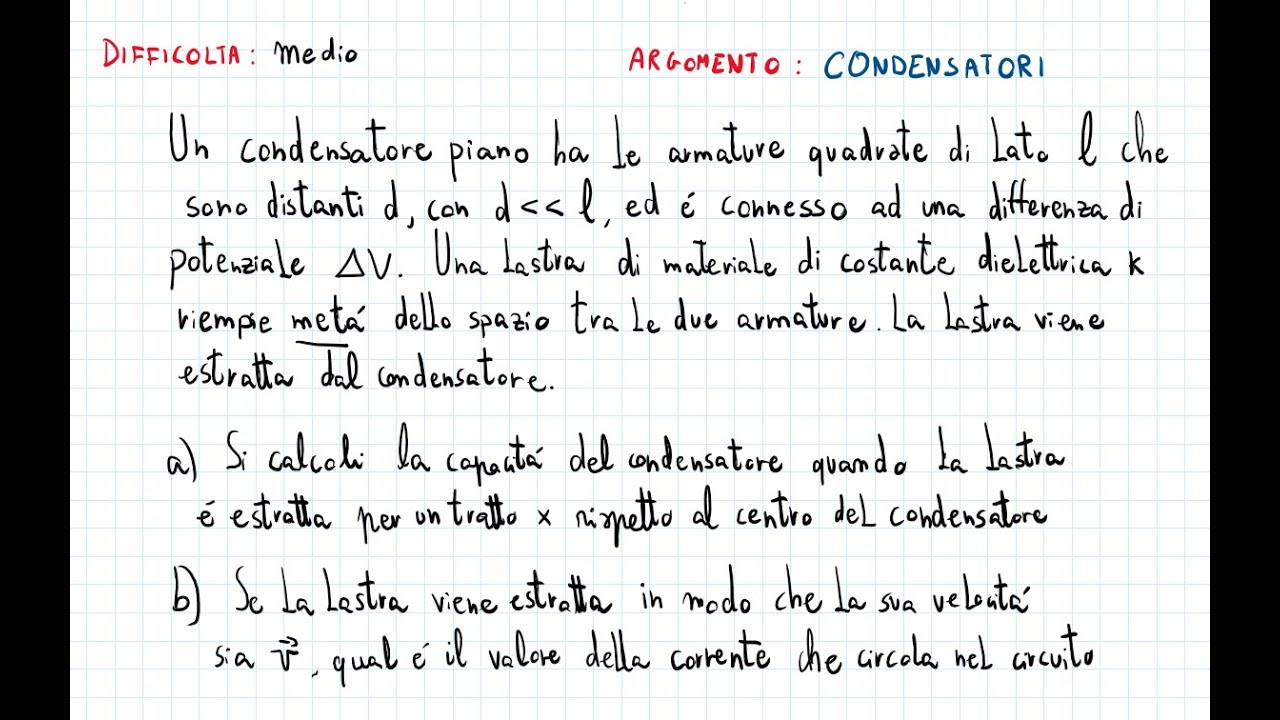 DIFFICOLTA: Medio
ARGOMENTO: CONDENSATORI
Un condensatore piano ha le armature quadrate di lato l che
sono distanti d, con d << l, ed é connesso ad una differenza di
potenziale ΔV. Una lastra di materiale di costante dielettrica k
riempie metá dello spazio tra le due armature. La lastra viene
estratta dal condensatore.
a) Si calcoli la capacitá del condensatore quando la lastra
é estratta per un tratto x rispetto al centro del condensatore
b) Se la lastra viene estratta in modo che la sua velocitá
sia v⃗, qual é il valore della corrente che circola nel circuito